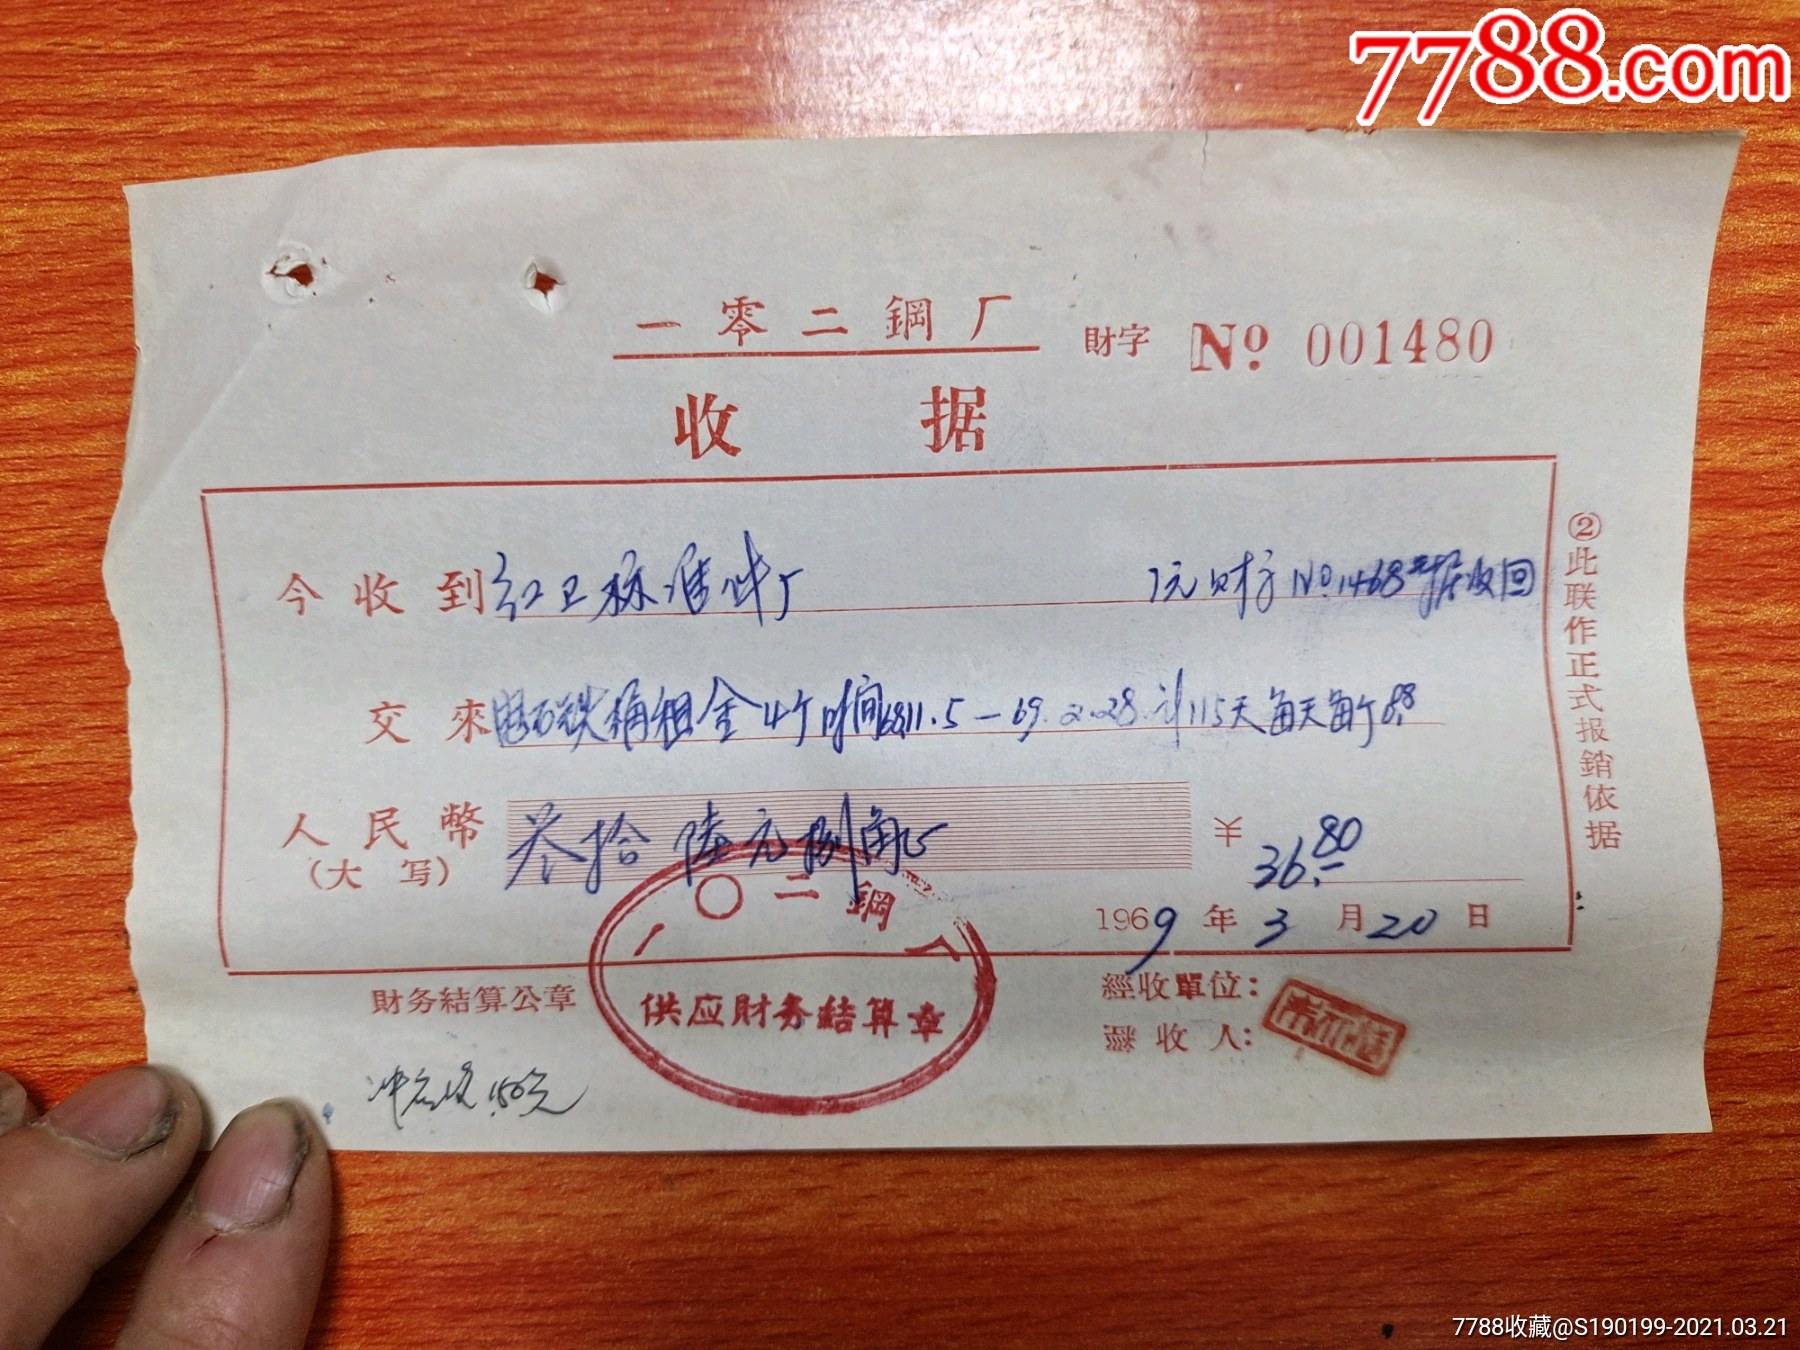 7788.com
一零二鋼厂
財字 No. 001480
收据
今收到 红卫标准件厂 元财字No.1468#据收回
交來 电石铁桶租金4个时间68.11.5—69.2.28.计115天每天每个8分
人民幣 叁拾陆元捌角 ¥ 36.80
(大写)
1969年3月20日
一〇二鋼厂
供应財务結算章
財务結算公章
經收單位:
經收人:
②此联作正式报銷依据
150元
7788收藏@S190199-2021.03.21